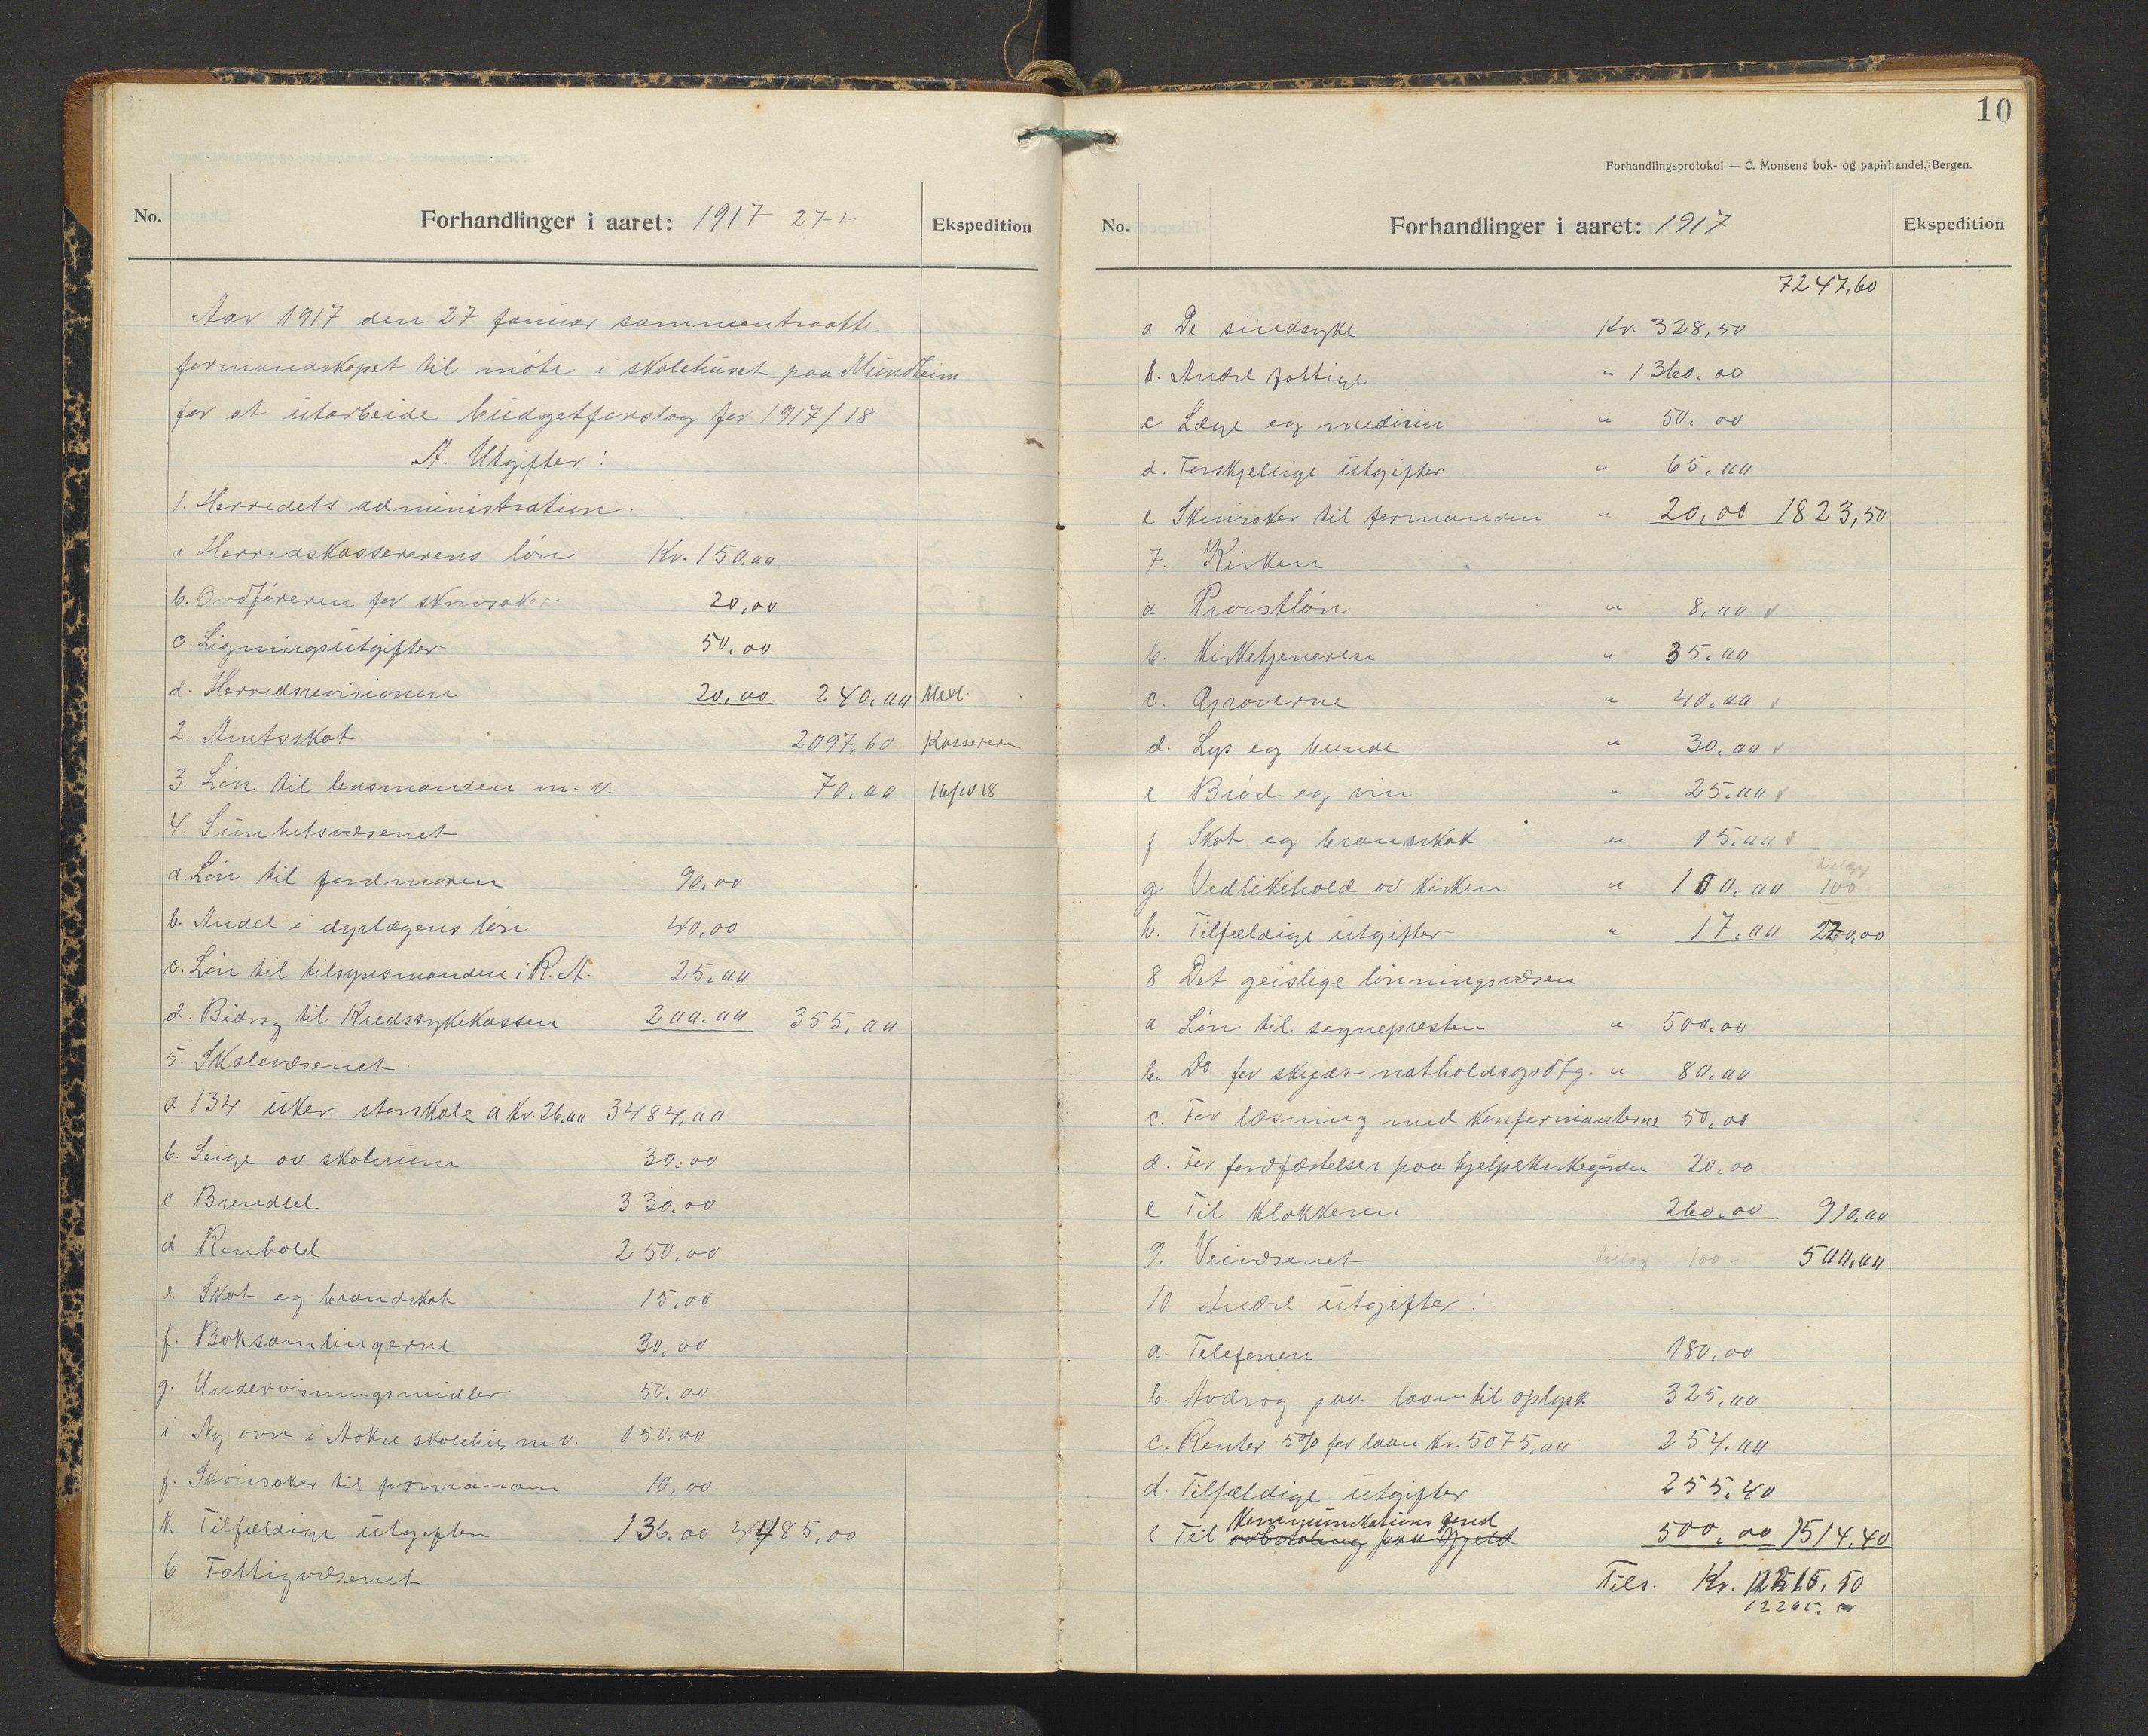 No.
Forhandlinger i aaret: 1917 27-1-
Ekspedition
Aar 1917 den 27 januar sammentraatte
formandskapet til møte i skolehuset paa Mundheim
for at utarbeide budgetforslag for 1917/18
A. Utgifter:
1. Herredets administration.
a Herredskassererens løn Kr. 150,00
b. Ordføreren for skrivsaker 20,00
c. Ligningsutgifter 50,00
d. Herredsrevisionen 20,00 240,00 Med.
2. Amtsskat 2097,60 Kassereren
3. Løn til lensmanden m. v. 70,00 16/10 18
4. Sunhetsvæsenet
a. Løn til jordmoren 90,00
b. Andel i dyrlægens løn 40,00
c. Løn til tilsynsmanden i R. A. 25,00
d. Bidrag til Kredssykekassen 200,00 355,00
5. Skolevæsenet.
a 134 uker storskole a Kr. 26,00 3484,00
b. Leige av skolerum 30,00
c Brendsel 330,00
d Renhold 250,00
e Skat og brandskat 15,00
f. Boksamlingerne 30,00
g. Undervisningsmidler 50,00
i Ny ovn i Aakre skolehus m. v. 150,00
j. Skrivsaker til formanden 10,00
k Tilfældige utgifter 136,00 4485,00
6 Fattigvæsenet
10
Forhandlingsprotokol — C. Monsens bok- og papirhandel, Bergen.
No.
Forhandlinger i aaret: 1917
Ekspedition
7247,60
a De sindsyke Kr. 328,50
b. Andre fattige " 1360,00
c Læge og medicin " 50,00
d. Forskjellige utgifter " 65,00
e Skrivsaker til formanden " 20,00 1823,50
7. Kirken
a Provstløn " 8,00 v
b. Kirketjeneren " 35,00
c. Graverne " 40,00 v
d. Lys og bunde " 30,00 v
e Brød og vin " 25,00 v
f Skat og brandskat " 15,00 v
tillæg
g Vedlikehold av kirken " 100,00 100
h. Tilfældige utgifter " 17,00 270,00
8 Det geislige lønningsvæsen
a Løn til sognepresten " 500,00
b. Do for skyds-natholdsgodtg. " 80,00
c. For læsning med konfirmanterne 50,00
d. For jordfæstelser paa hjelpekirkegården 20,00
e Til klokkeren 260,00 910,00
9. Veivæsenet tillæg 100- 500,00
10 Andre utgifter:
a. Telefonen 180,00
b. Avdrag paa laan til oplysn. 325,00
c. Renter 5% for laan Kr. 5075,00 254,00
d. Tilfældige utgifter 255,40
Kommunikations fond
e Til avbetaling paa gjeld 500,00 1514,40
Tils. Kr. 12265,50
12265,